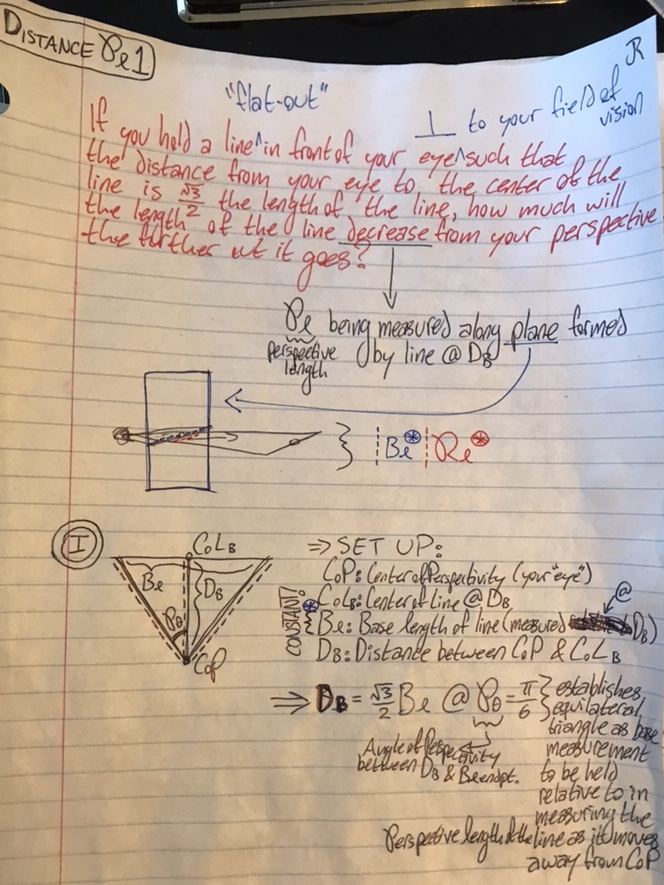 DISTANCE Pℓ 1
JR
"flat-out"
⊥ to your field of vision
If you hold a line^in front of your eye^such that
the distance from your eye to the center of the
line is √3/2 the length of the line, how much will
the length of the line decrease from your perspective
the further out it goes?
Pℓ being measured along plane formed
by line @ D_B
perspective
length
Bℓ⊛ Pℓ⊛
I
CoL_B
Bℓ
D_B
Pθ
CoP
⇒ SET UP:
CoP: Center of Perspectivity (your "eye")
CoL_B: Center of line @ D_B
CONSTANT!
⊛ Bℓ: Base length of line (measured @ D_B)
D_B: Distance between CoP & CoL_B
⇒ D_B = √3/2 Bℓ @ Pθ = π/6 } establishes
equilateral
triangle as base
measurement
to be held
relative to in
measuring the
Perspective length of the line as it moves
away from CoP
Angle of Perspectivity
between D_B & Bℓ endpt.